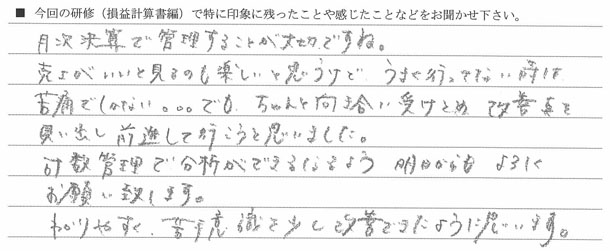 ■ 今回の研修(損益計算書編)で特に印象に残ったことや感じたことなどをお聞かせ下さい。
月次決算で管理することが大切ですね。
売上がいいと見るのも楽しいと思うけど うまく行ってない時は
苦痛でしかない。。。でも、ちゃんと向き合い受けとめ 改善点を
見い出し前進して行こうと思いました。
計数管理で分析ができるなるよう 明日からも よろしく
お願い致します。
わかりやすく、苦手意識を少し改善できたように思います。